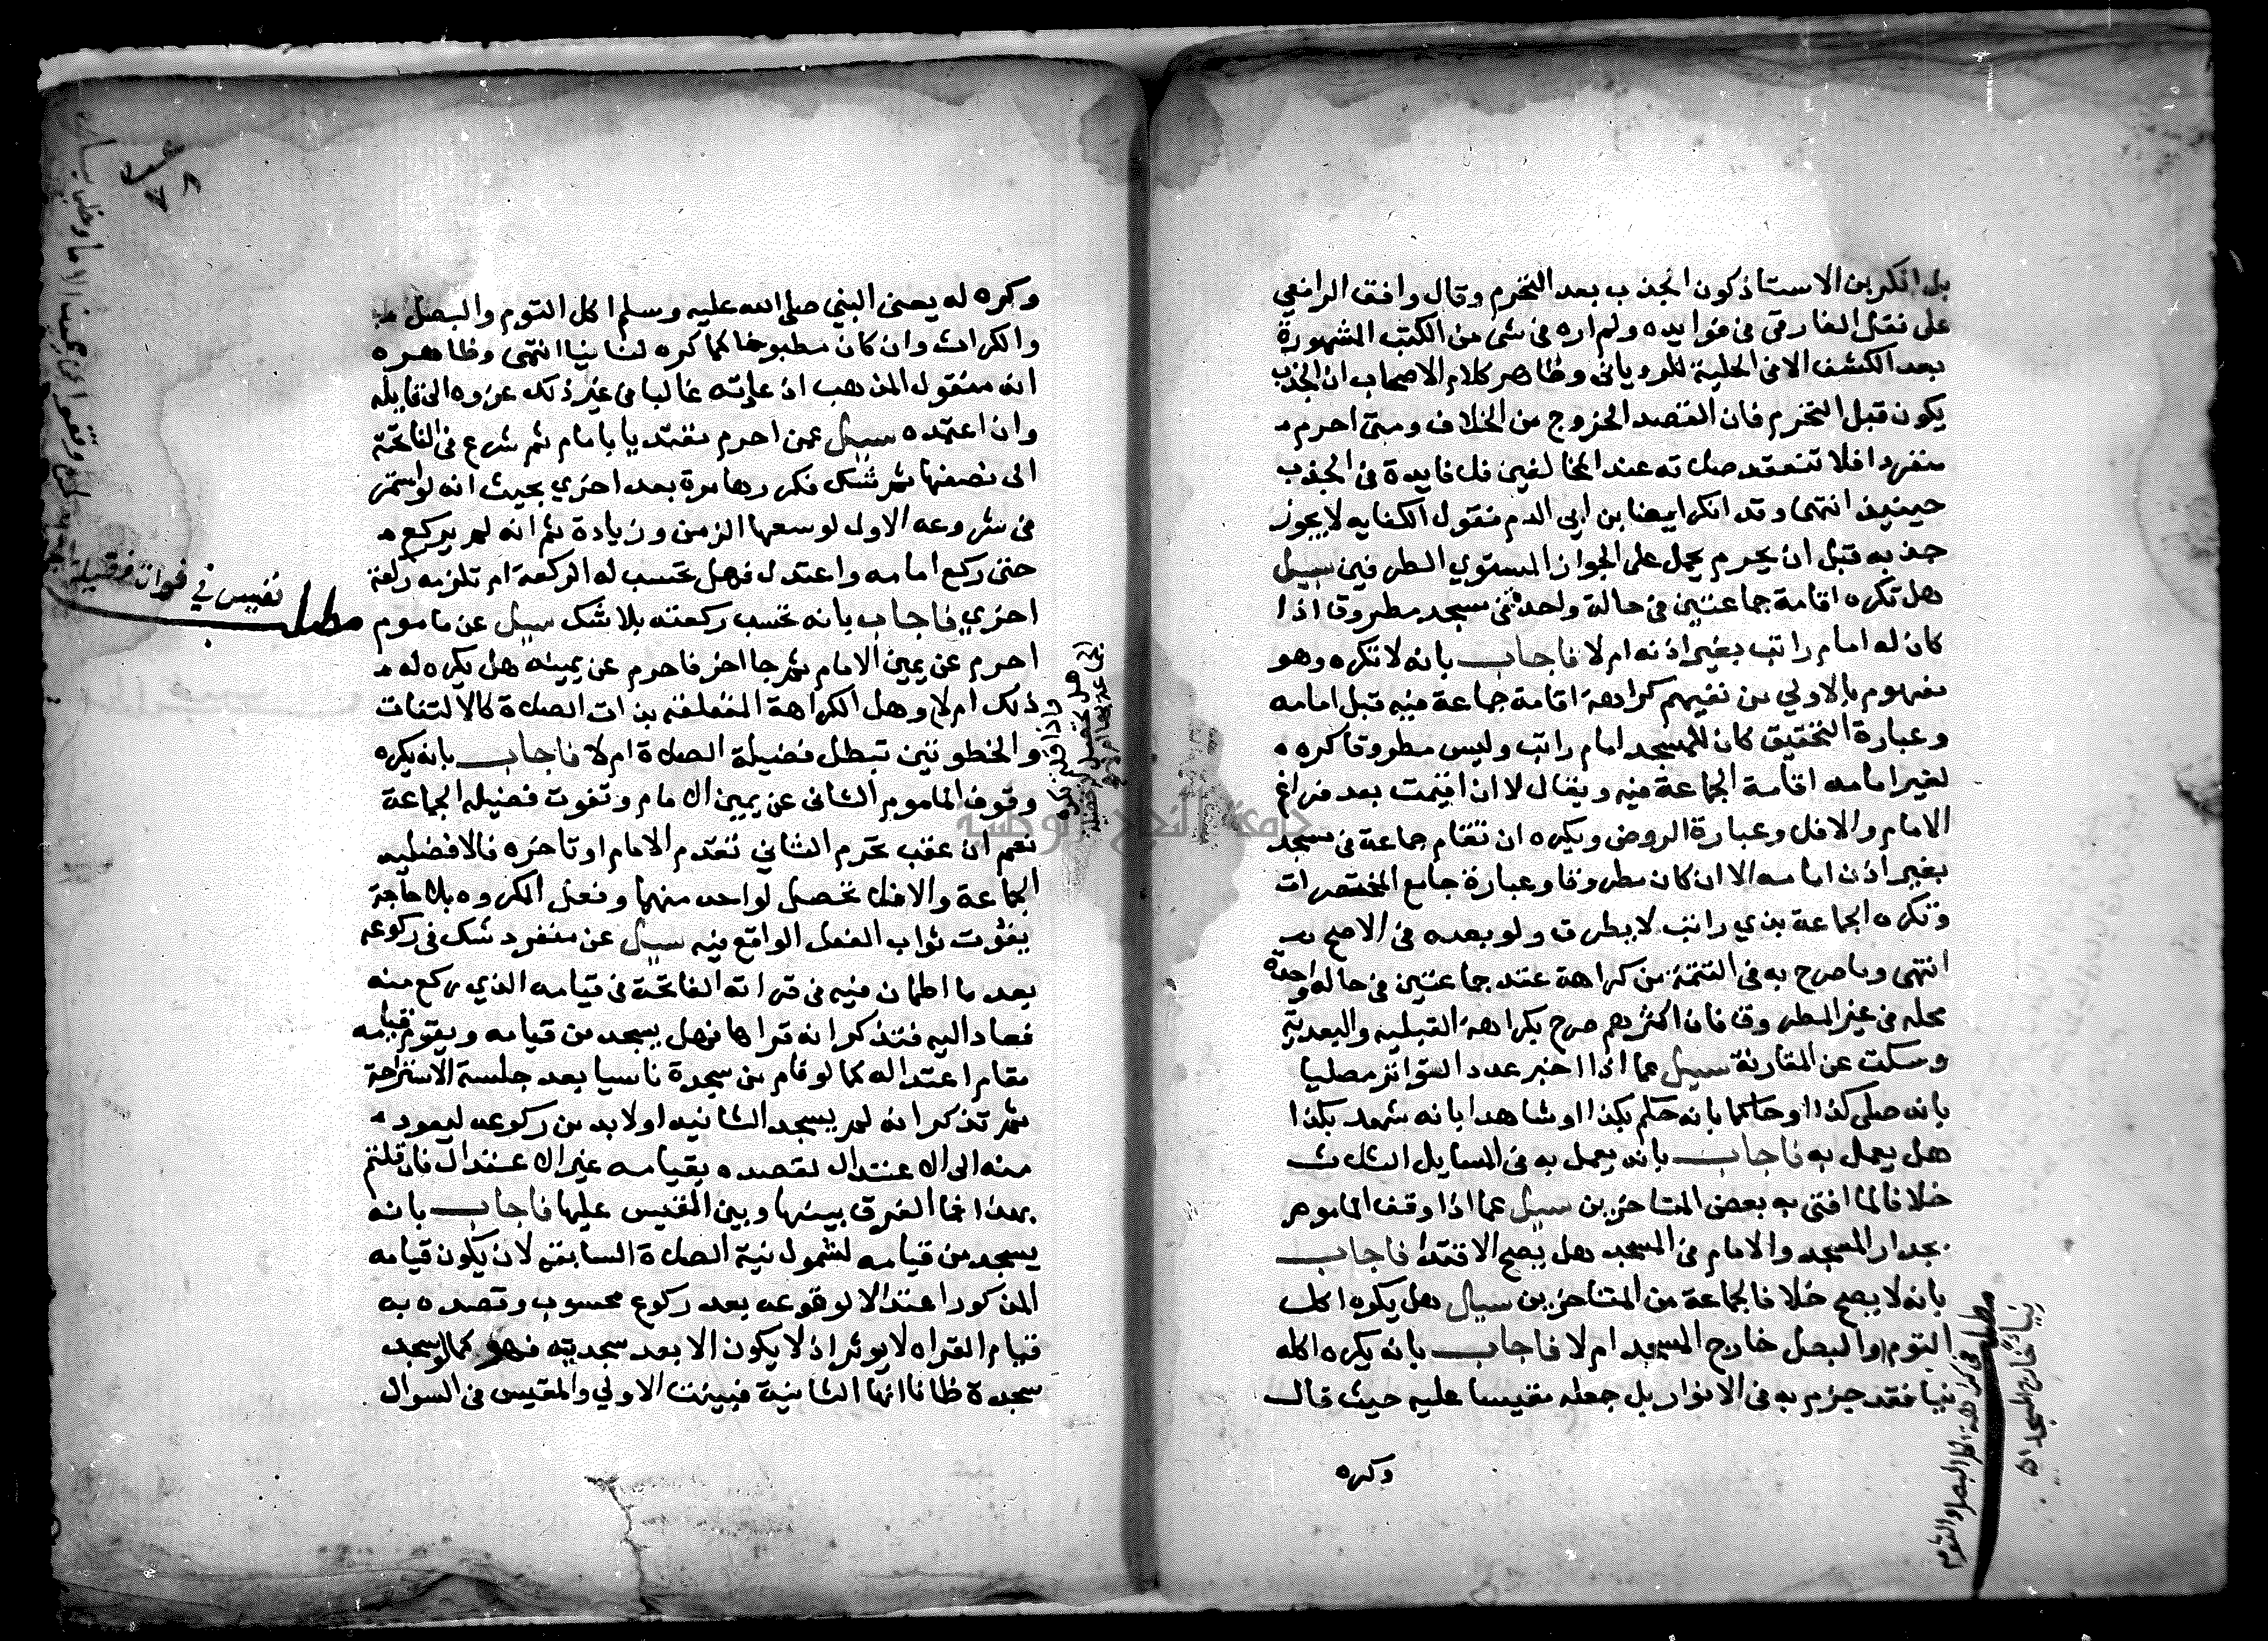 بل انكر بن الاستاذ كون الجذب بعد التحرم وقال وافق الرافعي
على نقل الفارقى فى فوايده ولم اره فى شى من الكتب المشهورة
بعد الكشف الا فى الحلية للرويانى وظاهر كلام الاصحاب ان الجذب
يكون قبل التحرم فان القصد الخروج من الخلاف ومتى احرم
منفردا فلا تنعقد صلاته عند المخالفين فلا فايدة فى الجذب
حينيذ انتهى وقد انكر ايضا بن ابى الدم منقول الكفايه لا يجوز
جذبه قبل ان يحرم يحمل على الجواز المستوي الطرفين سيل
هل تكره اقامة جماعتين فى حالة واحدة فى مسجد مطروق اذا
كان له امام راتب بغير اذنه ام لا فاجاب بانه لا تكره وهو
مفهوم بالاولي من نفيهم كراهة اقامة جماعة فيه قبل امامه
وعبارة التحقيق كان للمسجد امام راتب وليس مطروقا كره
لغير امامه اقامة الجماعة فيه ويقال لا ان اقيمت بعد فراغ
الامام والا فلا وعبارة الروض ويكره ان تقام جماعة فى مسجد
بغير اذن امامه الا ان كان مطروقا وعبارة جامع المختصرات
وتكره الجماعة بذي راتب لا يطرق ولو بعده فى الاصح
انتهى وما صرح به فى التتمة من كراهة عقد جماعتين فى حاله واحدة
محله فى غير المطروق فان اكثرهم صرح بكراهة القبليه والبعدية
وسكت عن المقارنة سيل عما اذا اخبر عدد التواتر مصليا
بانه صلى كذا او حاكما بانه حكم بكذا او شاهدا بانه شهد بكذا
هل يعمل به فاجاب بانه يعمل به فى المسايل الثلاث
خلافا لما افتى به بعض المتاخرين سيل عما اذا وقف الماموم
بجدار المسجد والامام فى المسجد هل يصح الاقتدا فاجاب
بانه لا يصح خلافا لجماعة من المتاخرين سيل هل يكره اكل
الثوم والبصل خارج المسجد ام لا فاجاب بانه يكره اكله
نيا فقد جزم به فى الانوار بل جعله مقيسا عليه حيث قال
وكره
مطلب فى كراهة اكل البصل والثوم
نياء خارج المسجد اه
وكره له يعنى النبي صلى الله عليه وسلم اكل الثوم والبصل
والكراث وان كان مطبوخا كما كره لنا نيا انتهى وظاهره
انه منقول المذهب اذ عادته غالبا فى غير ذلك عزوه الى قايله
وان اعتمده سيل عمن احرم مقتديا بامام ثم شرع فى الفاتحة
الى نصفها ثم شك فكررها مرة بعد اخري بحيث انه لو استمر
فى شروعه الاول لوسعها الزمن وزيادة ثم انه لم يركع
حتى ركع امامه واعتدل فهل تحسب له الركعة ام تلزمه ركعة
اخري فاجاب بانه تحسب ركعته بلا شك سيل عن ماموم
احرم عن يمين الامام ثم جا اخر فاحرم عن يمينه هل يكره له
ذلك ام لا وهل الكراهة المتعلقة بذات الصلاة كالالتفات
والخطوتين تبطل فضيلة الصلاة ام لا فاجاب بانه يكره
وقوف الماموم الثانى عن يمين الامام وتفوت فضيله الجماعة
نعم ان عقب تحرم الثاني تقدم الامام او تاخره فالا فضليه
الجماعة والا فلا تحصل لواحد منهما وفعل المكروه بلا حاجة
يفوت ثواب الفعل الواقع فيه سيل عن منفرد شك فى ركوعه
بعد ما اطمان فيه فى قراته الفاتحة فى قيامه الذي ركع منه
فعاد اليه فتذكر انه قراها فهل يسجد من قيامه ويقوم قيامه
مقام اعتداله كما لو قام من سجدة ناسيا بعد جلسة الاستراحة
ثم تذكر انه لم يسجد الثانيه او لا بد من ركوعه ليعود
منه الى الاعتدال لقصده بقيامه غير الاعتدال فان قلتم
بهذا فما الفرق بينها وبين المقيس عليها فاجاب بانه
يسجد من قيامه لشمول نية الصلاة السابقه لان يكون قيامه
المذكور اعتدالا لوقوعه بعد ركوع محسوب وقصده به
قيام القراه لا يوثر اذ لا يكون الا بعد سجدتيه فهو كما لو سجد
سجدة ظانا انها الثانية فبينت الاولي والمقيس فى السوال
مطلب
نفيس في فوات فضيلة